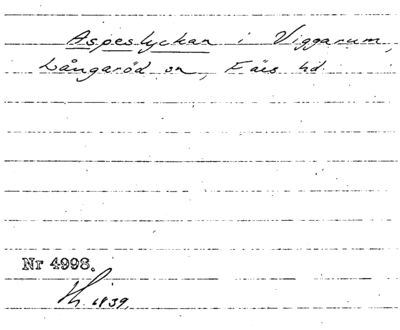 Aspeslyckan i Viggarum,
Långaröd sn, Färs hd.
Nr 4998.
Th. 1839.